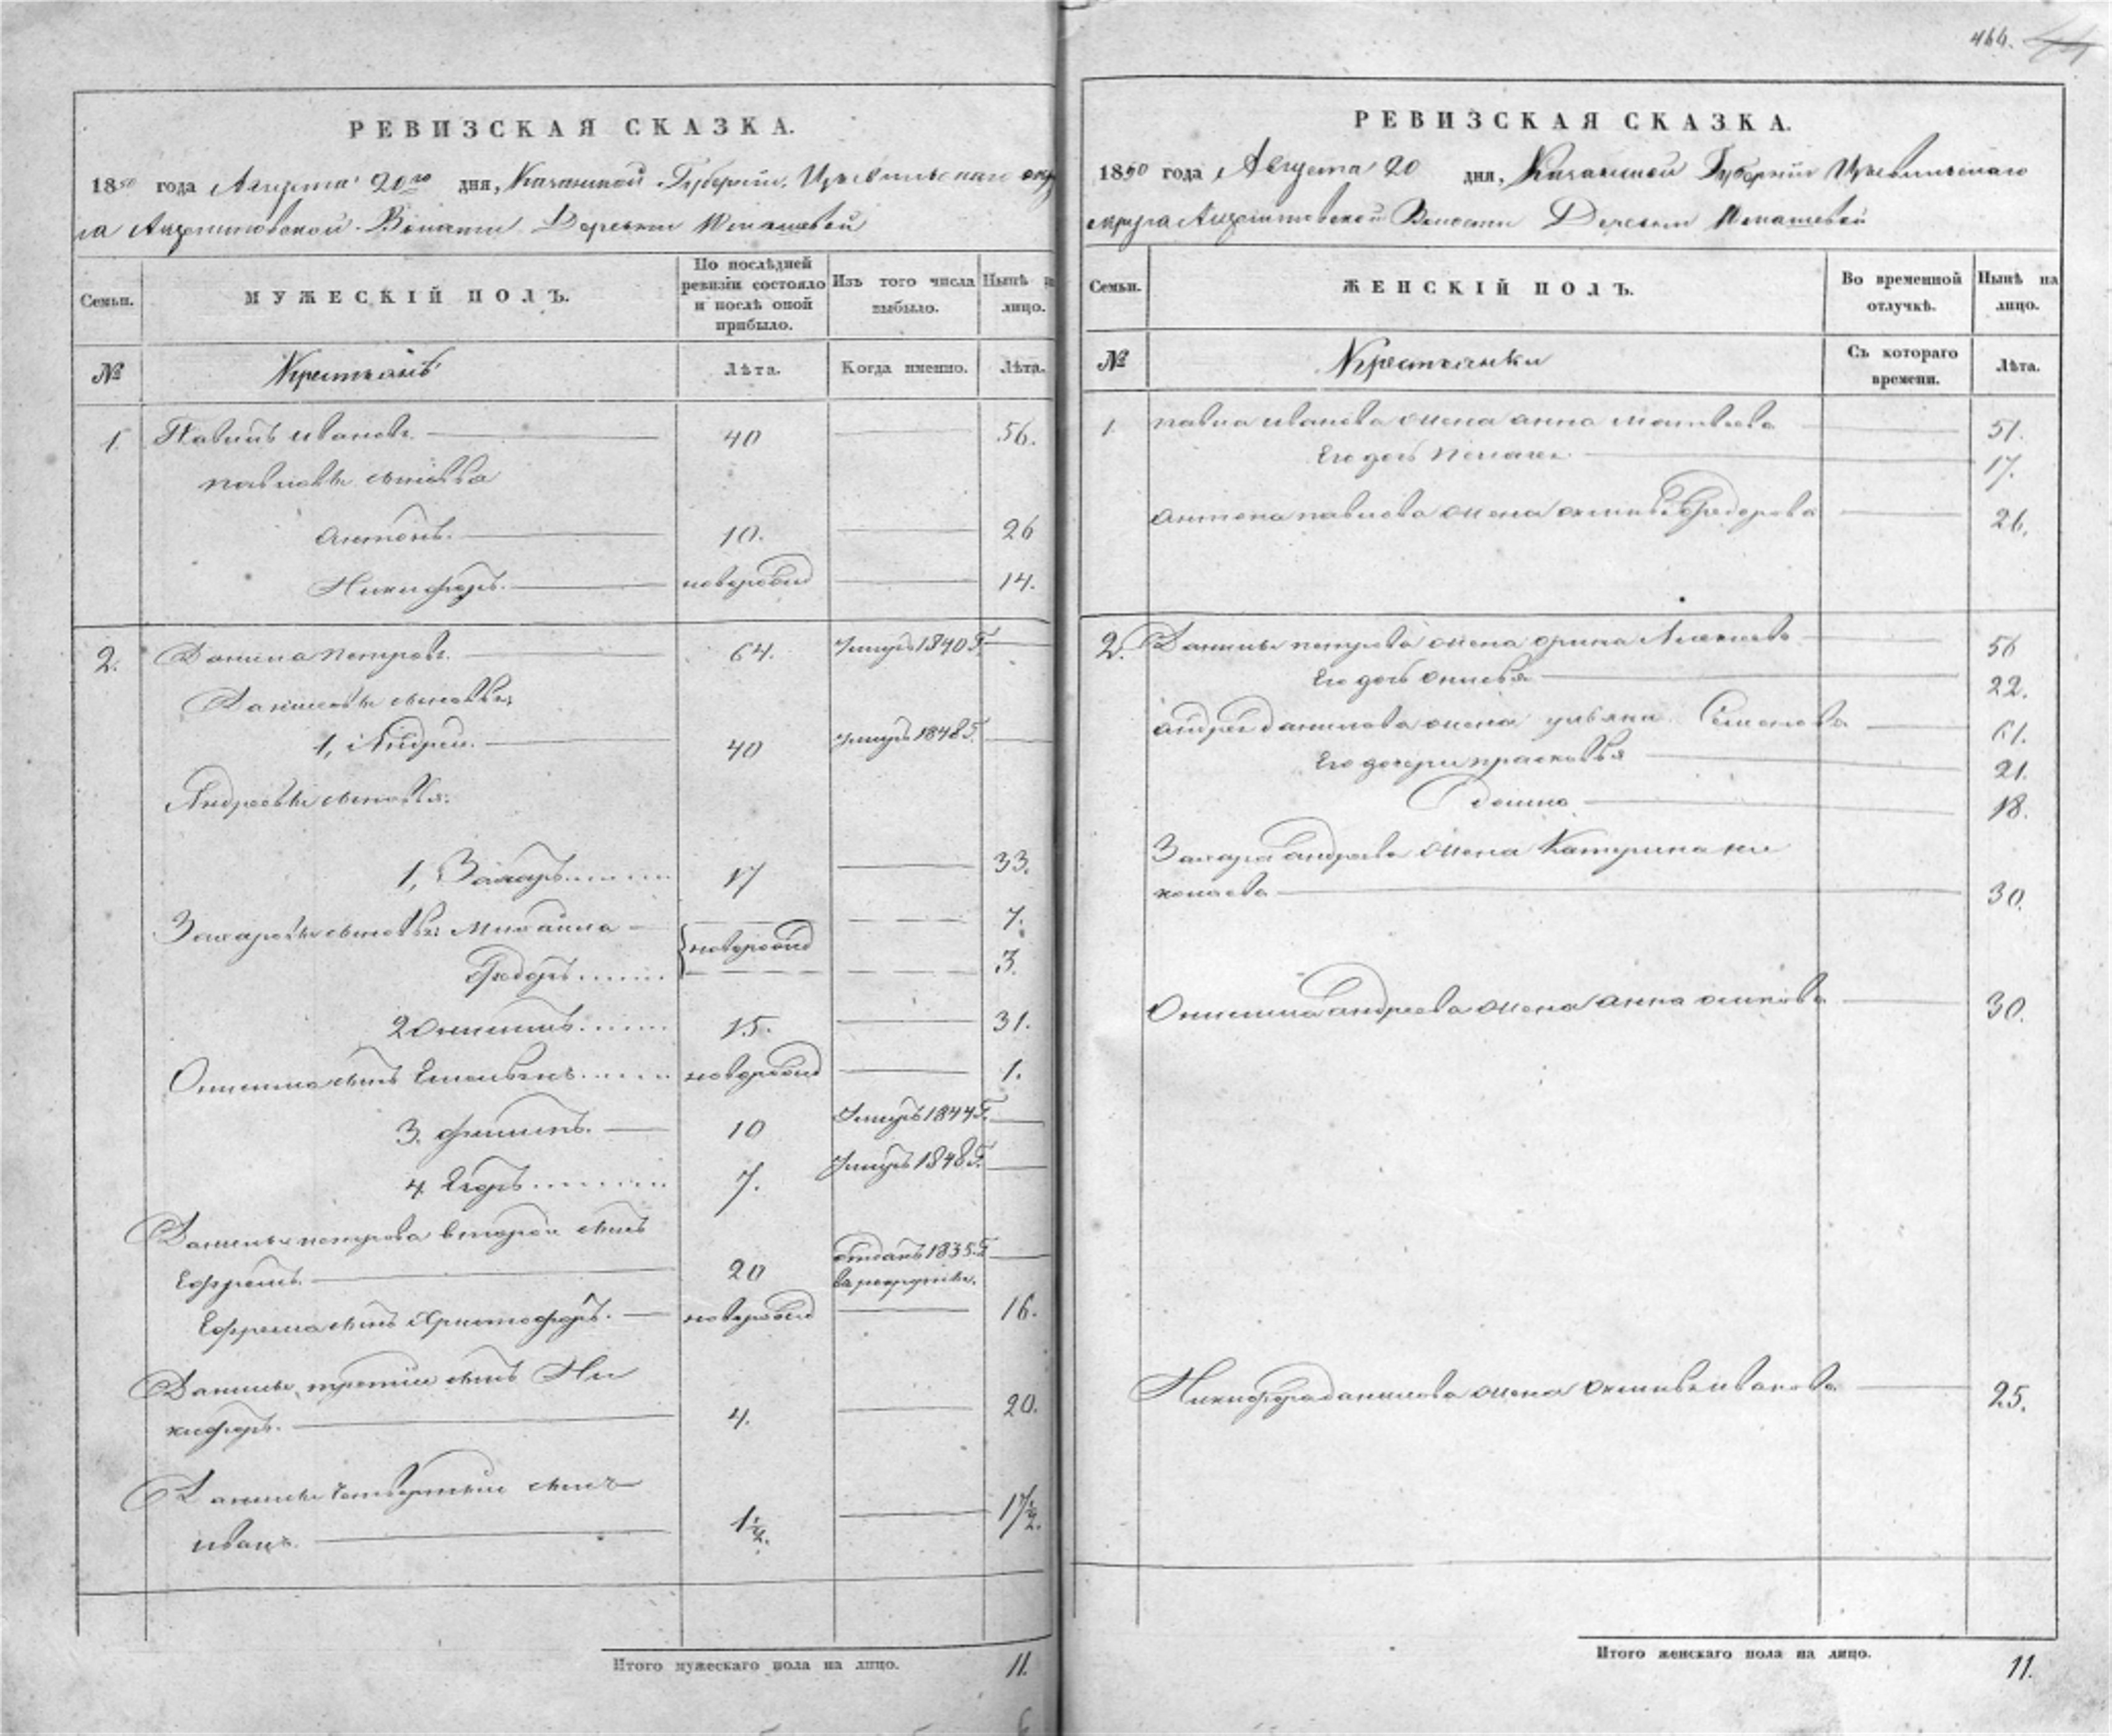 466.
РЕВИЗСКАЯ СКАЗКА.
1850 года Августа 20го дня, Казанской Губернии, Цывильскаго окру
га Волости Деревни
Семьи.
МУЖЕСКІЙ ПОЛЪ.
По послѣдней ревизіи состояло и послѣ оной прибыло.
Изъ того числа выбыло.
Нынѣ на лицо.
№
Крестьянъ
Лѣта.
Когда именно.
Лѣта.
1. Павилъ иванов. 40 56.
павловы сыновья
антонъ. 10. 26
Никифоръ. новорожд 14.
2. Данила петровъ. 64. умеръ 1840 Г.
Даниловы сыновья;
1, Андреи. 40 умеръ 1848 Г.
Андреевы сыновья:
1, Захаръ 17 33.
Захаровы сыновья: Михаила 7.
новорожд
Федоръ 3.
2 онисимъ 15. 31.
Онисима сынъ Емельянъ новорожд 1.
3. филипъ. 10 Умеръ 1844 Г.
4. Егоръ 7. Умеръ 1848 Г.
Данилы петрова второй сынъ
Ефремъ. 20 отданъ 1835. Г. в рекруты.
Ефрема сынъ Христофоръ. новорожд 16.
Данилы третий сынъ Ни
кифоръ. 4. 20.
Данилы четвертый сынъ
иванъ. 1½. 17½.
Итого мужескаго пола на лицо. 11.
РЕВИЗСКАЯ СКАЗКА.
1850 года Августа 20 дня, Казанской Губернии Цывильскаго
округа Волости Деревни
Семьи.
ЖЕНСКІЙ ПОЛЪ.
Во временной отлучкѣ.
Нынѣ на лицо.
№
Крестьянки
Съ котораго времени.
Лѣта.
1. павла иванова жена анна матвеева 51.
Его дочь Пелагея 17.
антона павлова жена Федорова 26.
2. Данилы петрова жена орина Алексеева 56
Его дочь 22.
андрея данилова жена ульяна Семенова 61.
Его дочери прасковья 21.
18.
Захара андреева жена Катерина ни
колаева 30.
Онисима андреева жена анна осипова 30.
Никифора данилова жена иванова 25.
Итого женскаго пола на лицо. 11.